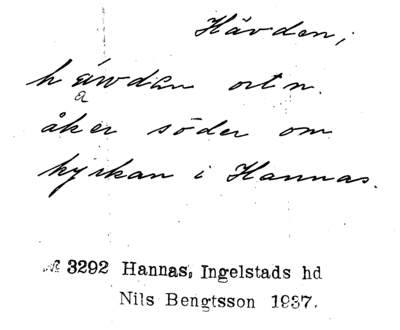 Hävden;
håwdan ortn.
a
åker söder om
kyrkan i Hannas.
№ 3292 Hannas, Ingelstads hd
Nils Bengtsson 1937.